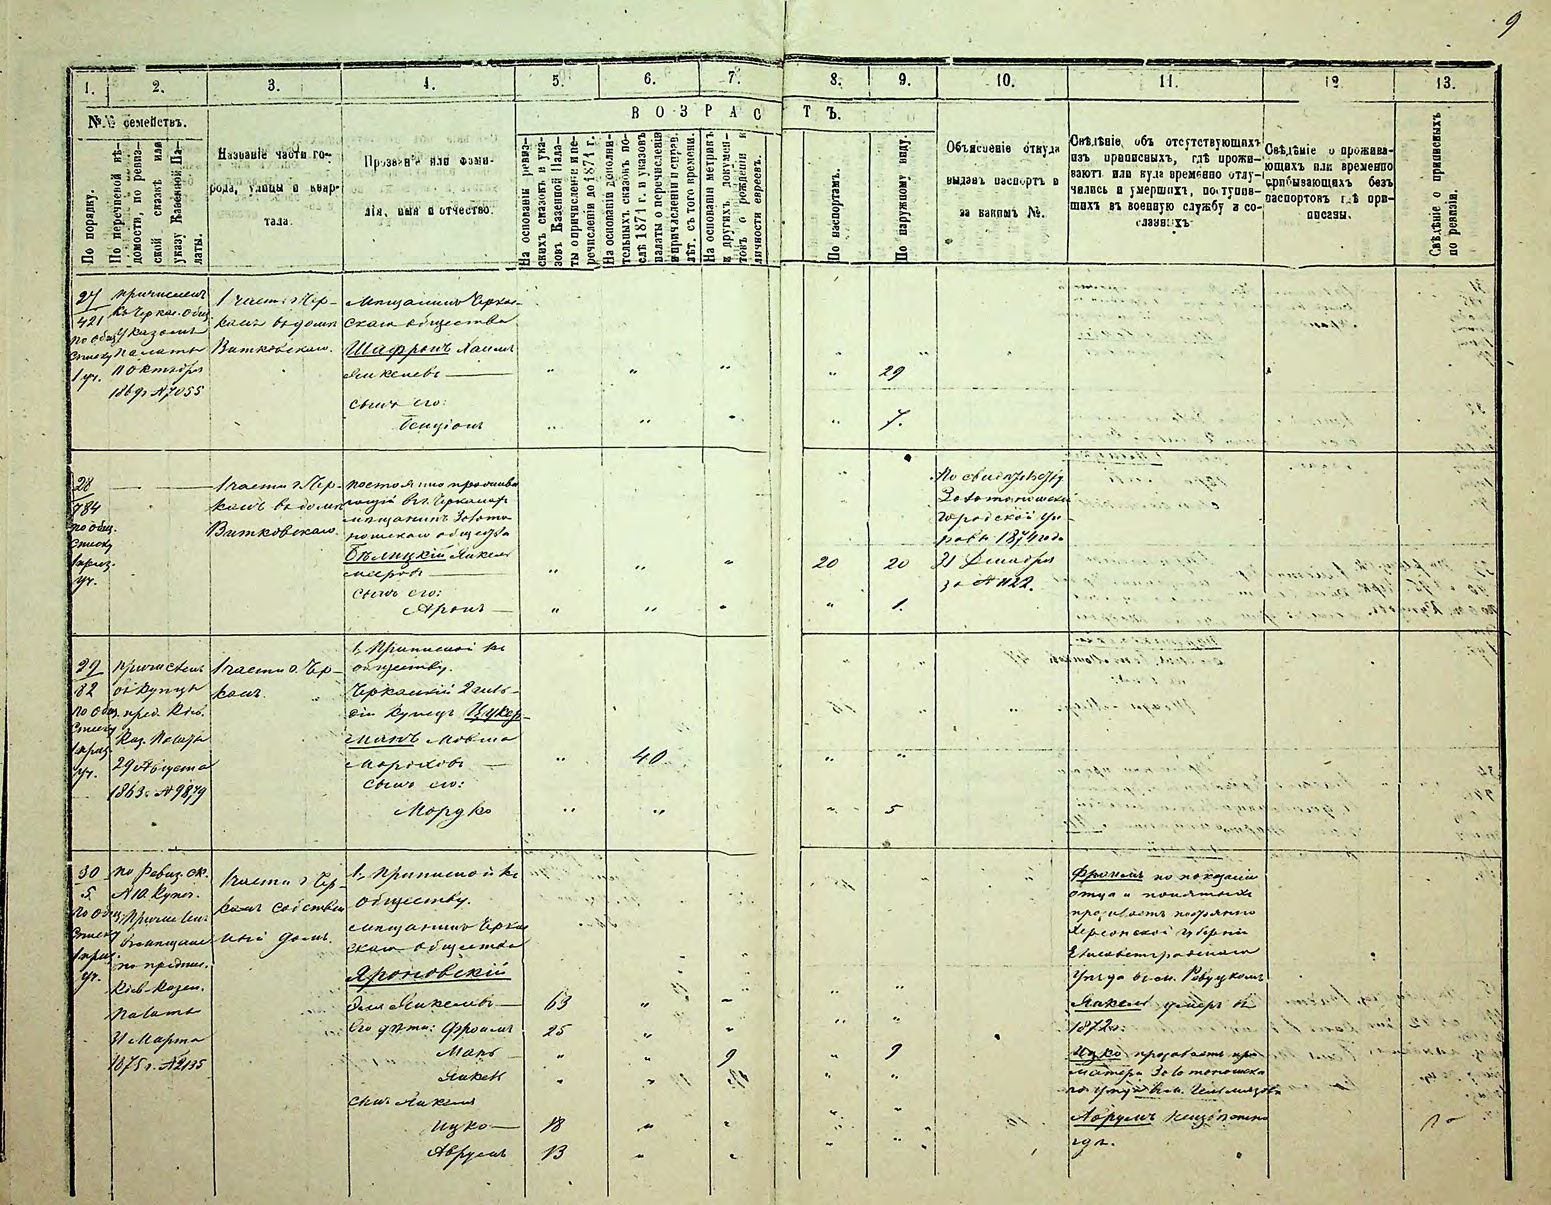 9
1. 2. 3. 4. 5. 6. 7. 8. 9. 10. 11. 12. 13.
№№ семействъ.
ВОЗРАСТЪ.
По порядку.
По перечневой вѣ-
домости, по ревиз-
ской сказкѣ или
указу Казенной Па-
латы.
Названіе части го-
рода, улицы и квар-
тала.
Прозваніе или фами-
лія, имя и отчество.
На основаніи ревиз-
скихъ сказокъ и ука-
зовъ Казенной Пала-
ты о причисленіи и пе-
речисленіи до 1874 г.
На основаніи дополни-
тельныхъ сказокъ по-
слѣ 1874 г. и указовъ
палаты о перечисленіи
и причисленіи и справ.
лѣт. съ того времени.
На основаніи метрикъ
и другихъ докумен-
товъ о рожденіи и
личности евреевъ.
По паспортамъ.
По наружному виду.
Объясненіе откуда
выданъ паспортъ и
за какимъ №.
Свѣдѣніе, объ отсутствующихъ
изъ приписныхъ, гдѣ прожи-
ваютъ или куда временно отлу-
чались и умершихъ, поступив-
шихъ въ военную службу и со-
сланныхъ
Свѣдѣніе о прожива-
ющихъ или временно
прибывающихъ безъ
паспортовъ гдѣ при-
писаны.
Свѣдѣніе о приписныхъ
по ревизіи.
27
421
по общ.
списку
1 уч.
причисленъ
къ Черкас. общ.
указомъ
палаты
11 октября
1869 г № 7055
1 части г Чер-
касъ въ домѣ
Витковскаго.
мѣщанинъ Черкас-
скаго общества
Шафранъ Хаимъ
Янкелевъ
сынъ его:
Бенціонъ
29
7.
28
784
по общ.
списку
1 приз.
уч.
1 части г Чер-
касъ въ домѣ
Витковскаго.
постоянно прожива-
ющій въ г. Черкасахъ
мѣщанинъ Золото-
ношскаго общества
Бѣлицкій Янкель
Мееровъ
сынъ его:
Аронъ
20 20
1.
По свидѣтельству
Золотоношской
Городской Уп-
равы 1874 года
31 Декабря
за № 1122.
29
82
по общ.
списку
1 приз.
уч.
причисленъ
въ купцы
пред. Кіев.
Каз. Палаты
29 Августа
1863 г. № 9879
1 части г. Чер-
касъ.
1, Приписной къ
обществу.
Черкасскій 2 гиль-
діи купецъ Цукер-
манъ Мовша
Морковъ
сынъ его:
Мордко
40
5
30
5.
по общ.
списку
1 приз.
уч.
по Ревиз. ск.
№ 10 Купеч.
Причислен.
въ мѣщане
по предпис.
Кіев. Казен.
Палаты
31 Марта
1875 г. № 2135
1 части г Чер-
касъ собствен-
ный домъ.
1, приписной къ
обществу.
мѣщанинъ Черкас-
скаго общества
Яроновскій
Эля Янкелевъ 63
Его дѣти: Фроимъ 25
Мань 9 9
Янкель
сынъ Янкеля
Ицко 18
Абрумъ 13
Фроимъ по показанію
отца и понятыхъ
проживаетъ постоянно
Херсонской губерніи
Елисаветградскаго
Уѣзда въ м. Ровуцкомъ
Янкель умеръ въ
1872 г:
Ицко проживаетъ при
матери Золотоношска-
го уѣзда въ м.
Абрумъ неизвѣстно
гдѣ.